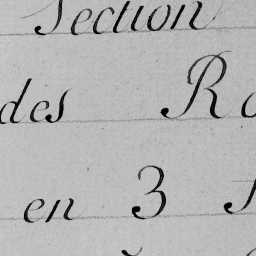 Section
des
en 3